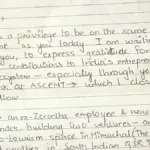 a privilege to be on the same
as you today. I am writing
you, to express gratitude for
contributions to India's entrepre
system - especially through yo
k at ASCENT - which I close
llow.
an ex-Zerodha, employee & now
nder, building two ventures - an
-tourism space in Himachal (The
another in South Indian